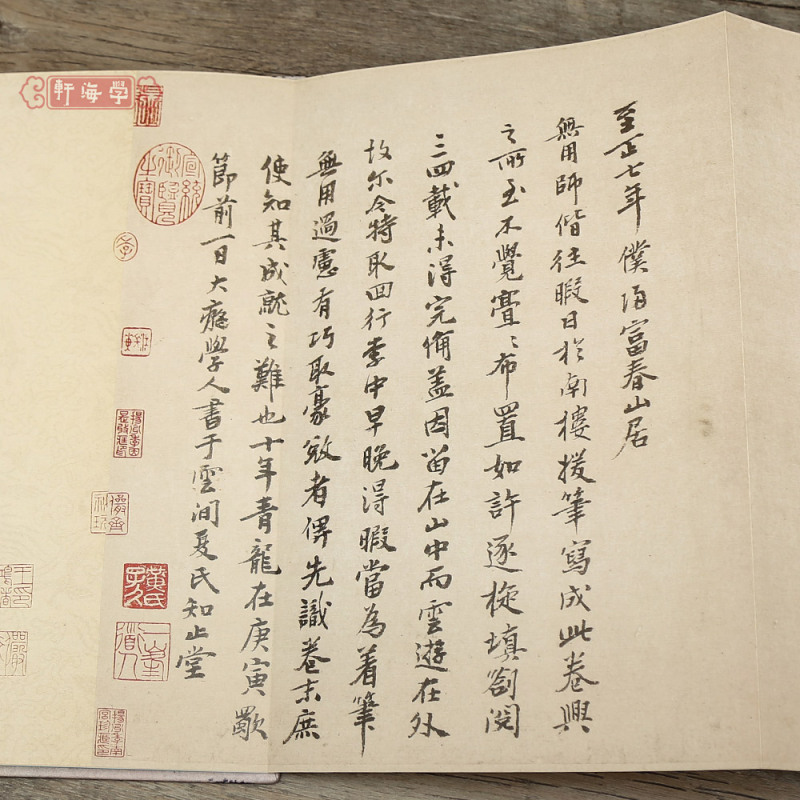 至正七年僕歸富春山居
無用師偕往暇日於南樓援筆寫成此卷興
之所至不覺亹〻布置如許逐旋填劄閱
三四載未得完備盖因留在山中而雲遊在外
故尔今特取回行李中早晚得暇當為着筆
無用過慮有巧取豪敚者俾先識卷末庶
使知其成就之難也十年青龍在庚寅歜
節前一日大癡學人書于雲間夏氏知止堂
學海軒
宣統御覽之寶
黃氏子久
一峯道人